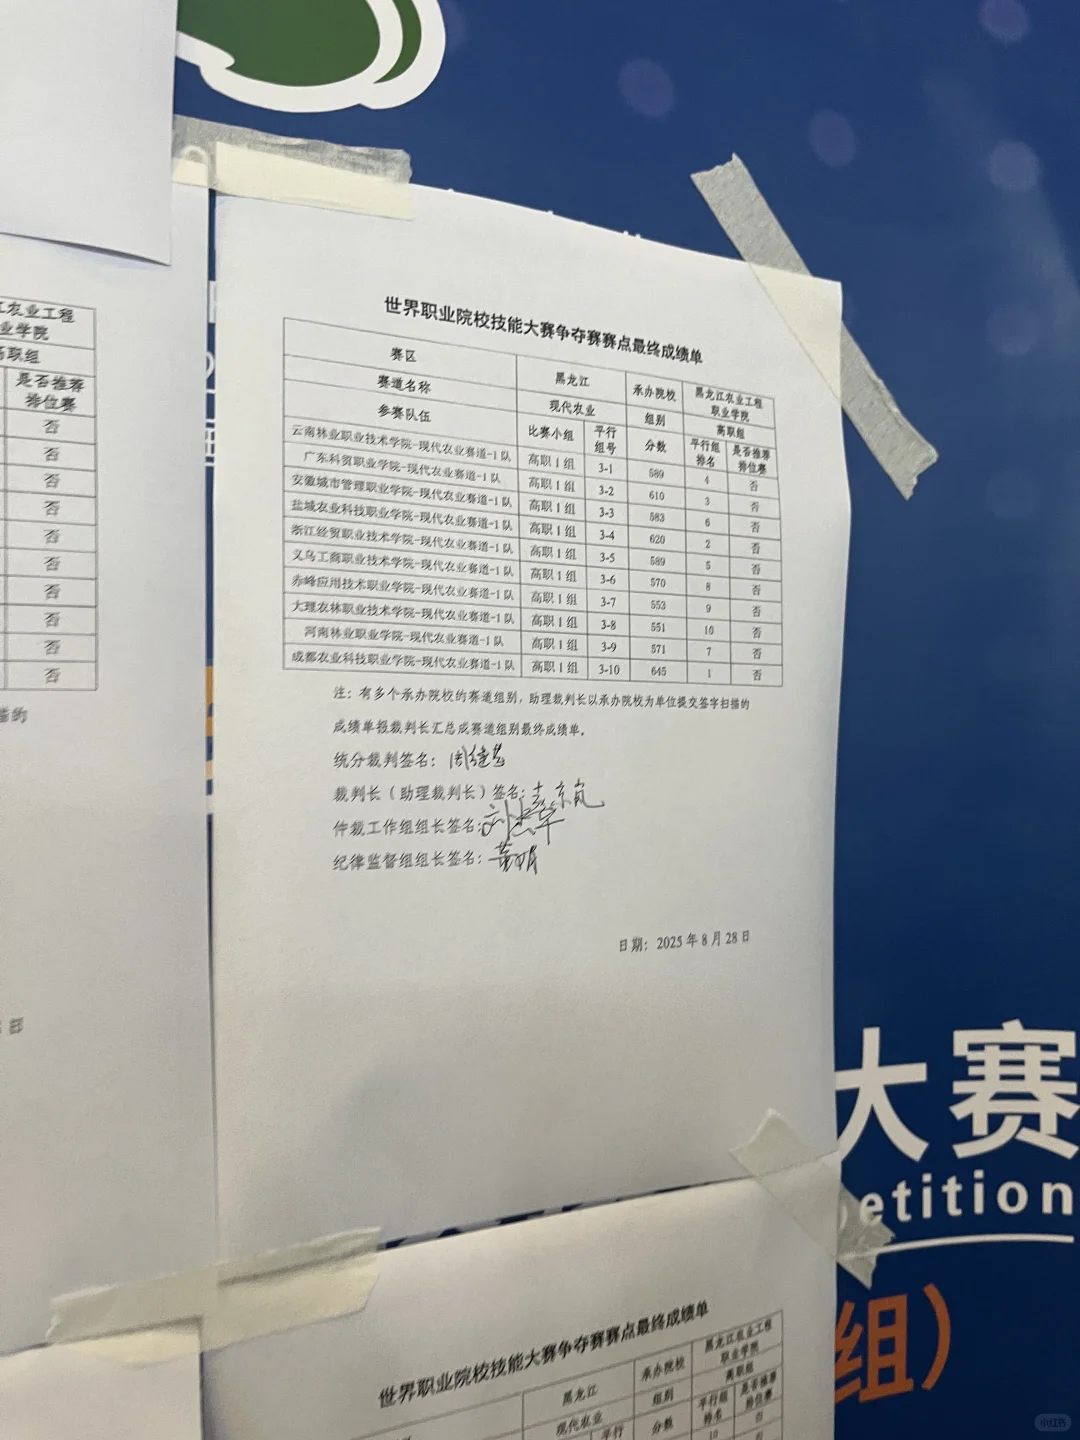 江农业工程
业学院
高职组
是否推荐
排位赛
否
否
否
否
否
否
否
否
否
否
描的
日
世界职业院校技能大赛争夺赛赛点最终成绩单
赛区 黑龙江 承办院校 黑龙江农业工程职业学院
赛道名称 现代农业 组别 高职组
参赛队伍 比赛小组 平行组号 分数 平行组排名 是否推荐排位赛
云南林业职业技术学院-现代农业赛道-1队 高职1组 3-1 589 4 否
广东科贸职业学院-现代农业赛道-1队 高职1组 3-2 610 3 否
安徽城市管理职业学院-现代农业赛道-1队 高职1组 3-3 583 6 否
盐城农业科技职业学院-现代农业赛道-1队 高职1组 3-4 620 2 否
浙江经贸职业技术学院-现代农业赛道-1队 高职1组 3-5 589 5 否
义乌工商职业技术学院-现代农业赛道-1队 高职1组 3-6 570 8 否
赤峰应用技术职业学院-现代农业赛道-1队 高职1组 3-7 553 9 否
大理农林职业技术学院-现代农业赛道-1队 高职1组 3-8 551 10 否
河南林业职业学院-现代农业赛道-1队 高职1组 3-9 571 7 否
成都农业科技职业学院-现代农业赛道-1队 高职1组 3-10 645 1 否
注：有多个承办院校的赛道组别，助理裁判长以承办院校为单位提交签字扫描的
成绩单报裁判长汇总成赛道组别最终成绩单。
统分裁判签名：
裁判长（助理裁判长）签名：
仲裁工作组组长签名：
纪律监督组组长签名：
日期：2025年8月28日
大赛
petition
组）
世界职业院校技能大赛争夺赛赛点最终成绩单
黑龙江 承办院校 黑龙江农业工程职业学院
现代农业 组别 高职组
平行 分数 平行组排名 是否推荐排位赛
10 否
小红书